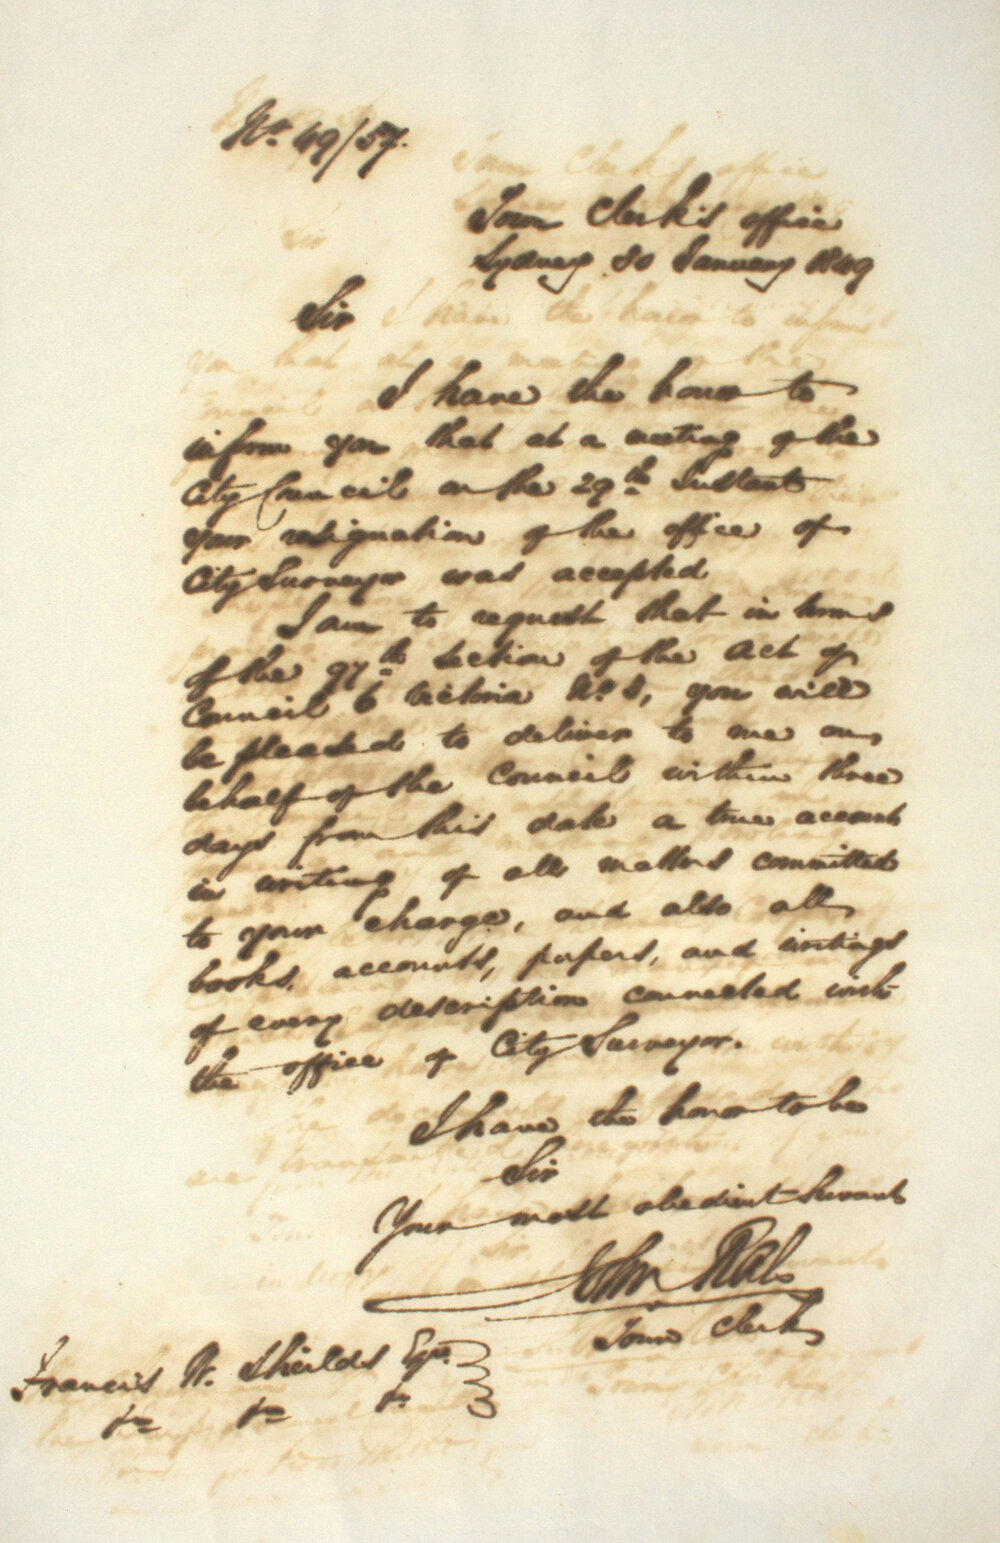 No. 49/57.
Town Clerk's office
Sydney 30 January 1849
Sir
I have the honor to
inform you that at a meeting of the
City Council on the 29th Instant
your resignation of the office of
City Surveyor was accepted
I am to request that in terms
of the 97th Section of the Act of
Council 6 Victoria No. 3, you will
be pleased to deliver to me on
behalf of the Council within three
days from this date a true account
in writing of all matters committed
to your charge, and also all
books, accounts, papers, and writings
of every description connected with
the office of City Surveyor.
I have the honor to be
Sir
Your most obedient Servant
John Rae
Town Clerk
Francis W. Sheilds Esqre.